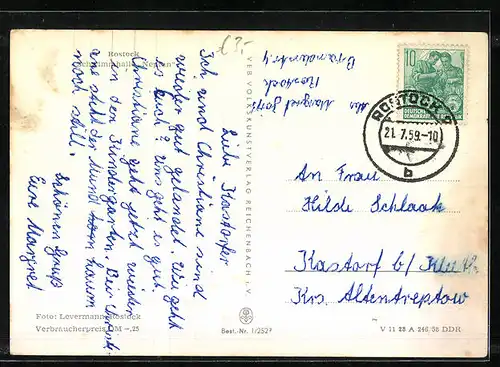 Rostock
Schwimmhalle "Neptun"
€ 3,-
Liebe Kastorfer
Ich und Christiane sind
wieder gut gelandet. Wie geht
es Euch? Uns geht es gut
Christiane geht jetzt wieder
in den Kindergarten. Bei Christi-
ane steht der Mund kaum
noch still.
Schönen Gruß
Eure Margret
Foto: Levermann, Rostock
Verbraucherpreis DM -,25
VEB VOLKSKUNSTVERLAG REICHENBACH i. V.
Best.-Nr. 1/252
Abs. Margret
Rostock
10
DEUTSCHE
DEMOKRATISCHE
ROSTOCK
21.7.59.-10
b
An Frau
Hilde Schlaak
Kastorf b/
Krs. Altentreptow
V 11 28 A 246/58 DDR